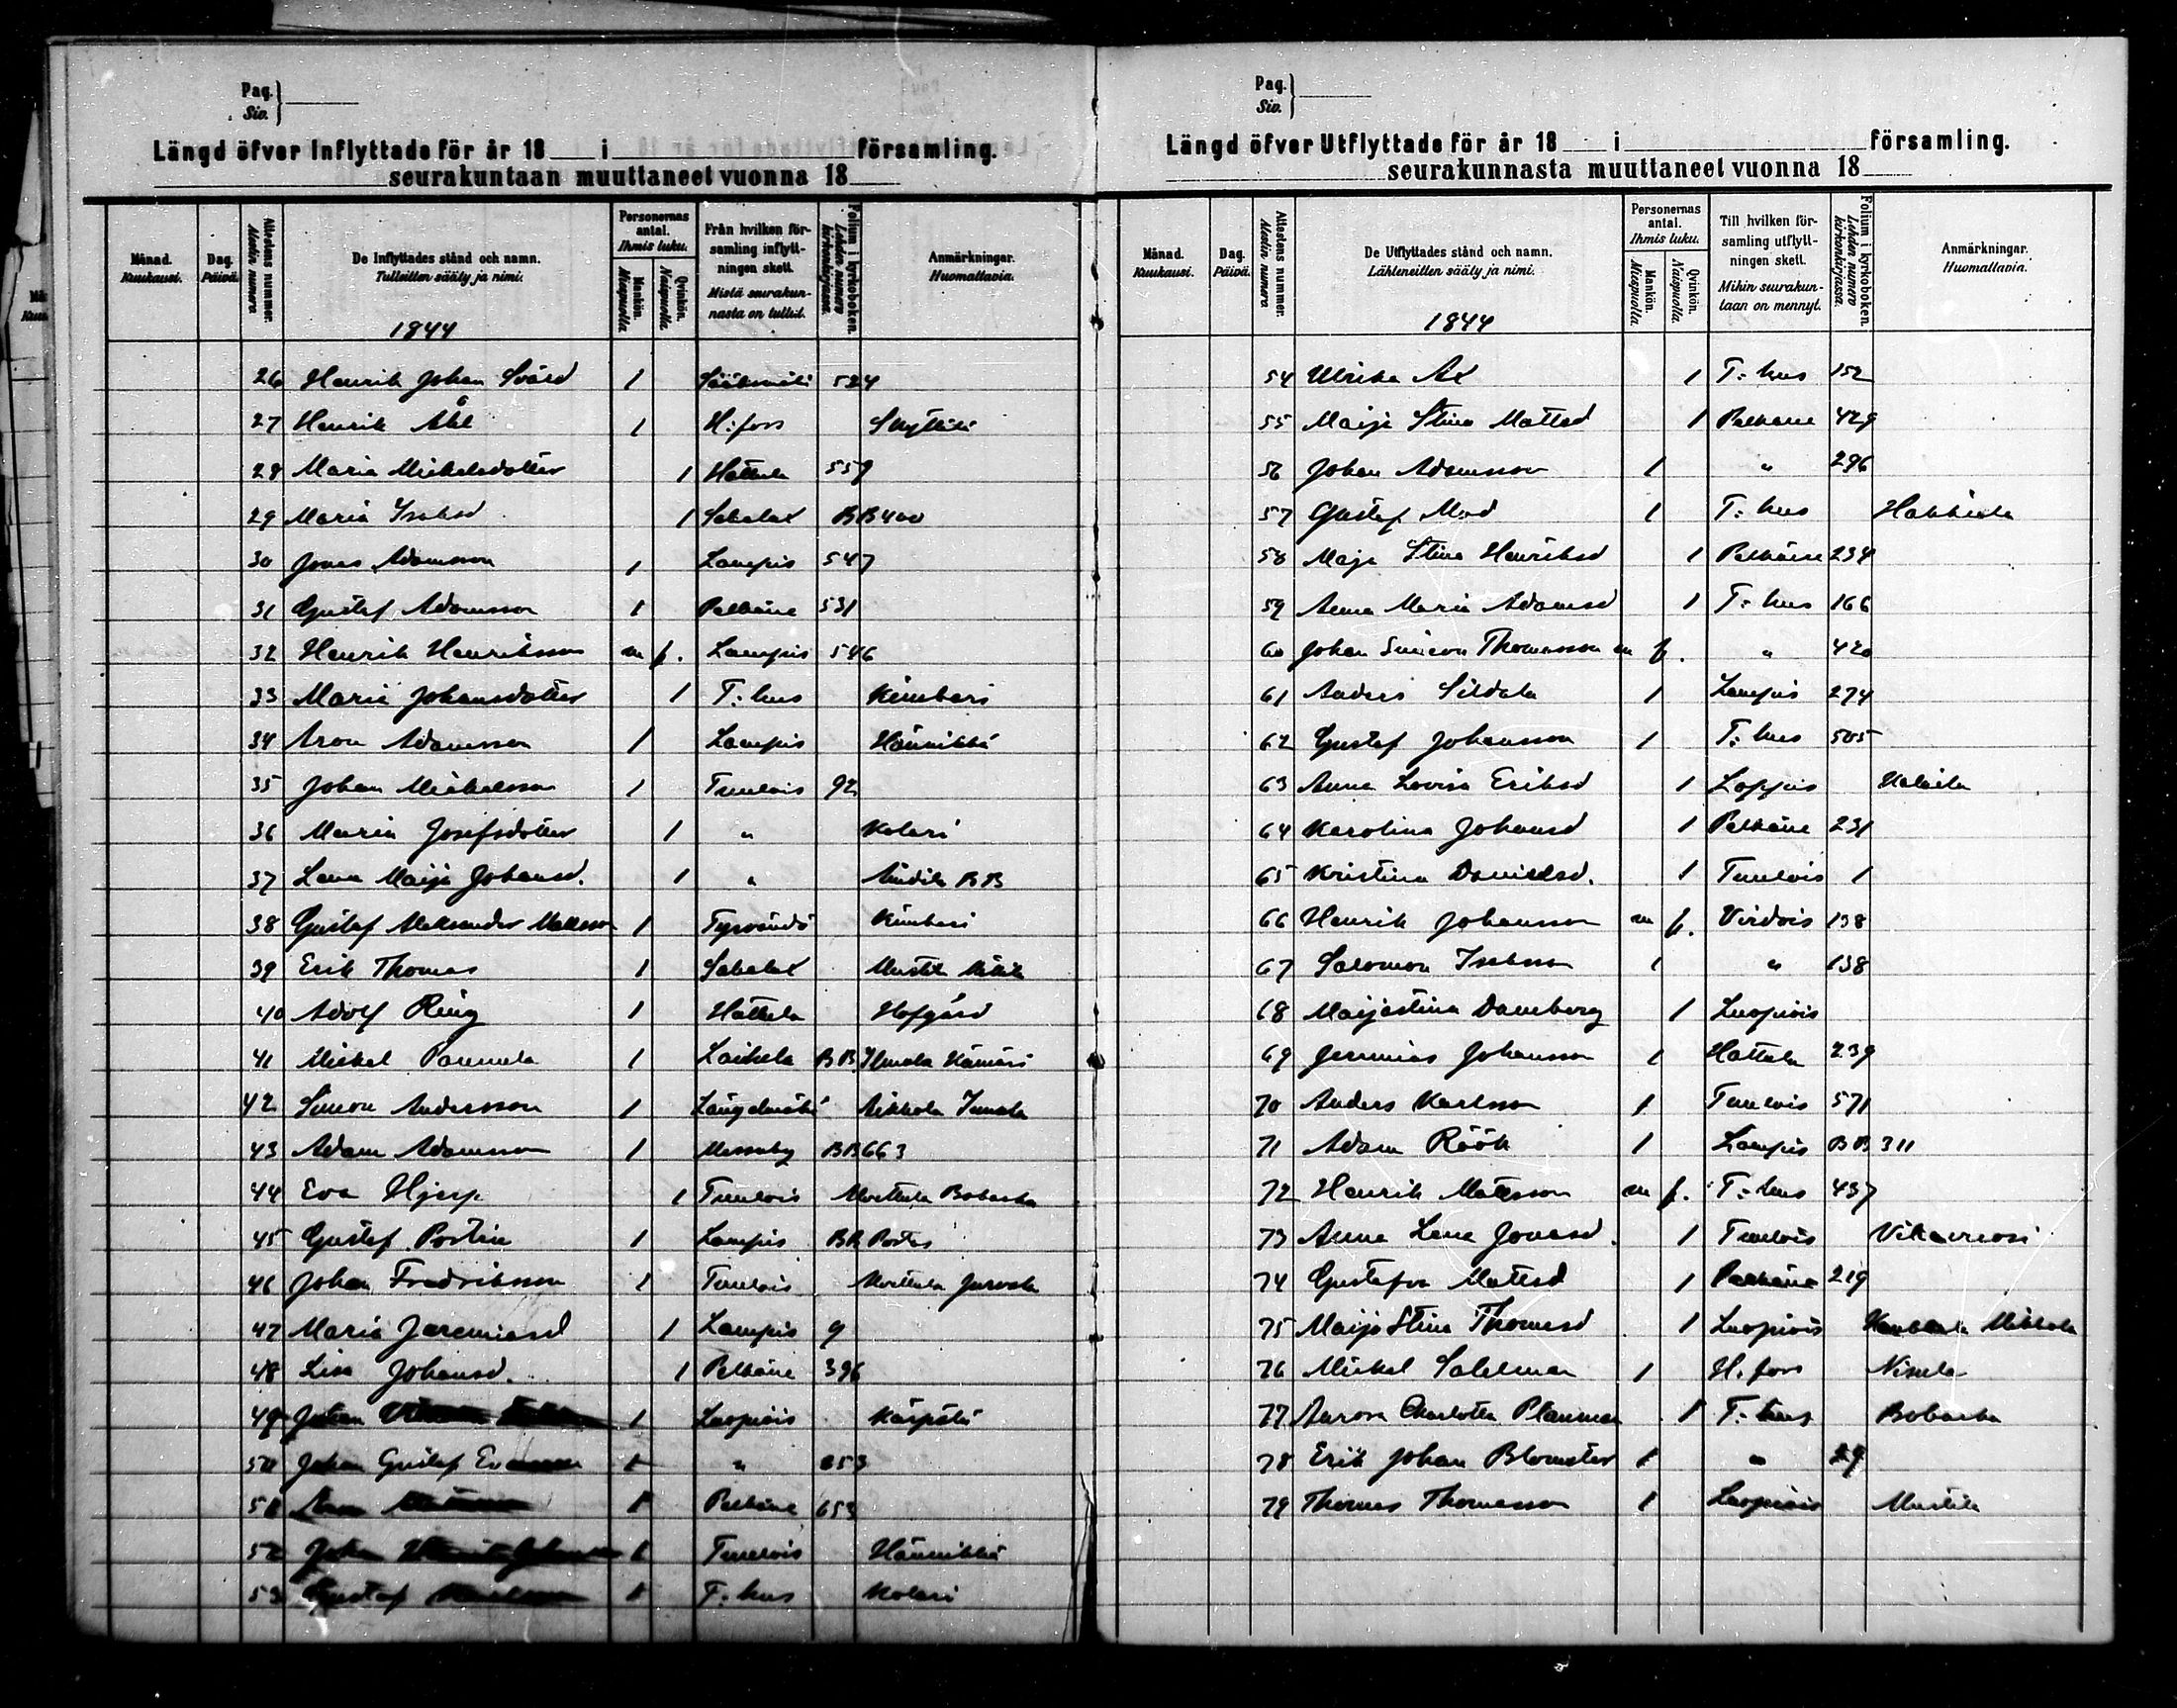 Pag.
Siv.
Längd öfver Inflyttade för år 18 i församling.
seurakuntaan muuttaneet vuonna 18
Månad. Kuukausi.
Dag. Päivä.
Attestens nummer. Alestin numero
De Inflyttades stånd och namn. Tulleitten sääty ja nimi.
Personernas antal. Ihmis luku.
Mankön. Miespuolia
Qvinkön. Naispuolia
Från hvilken församling inflyttningen skett. Mistä seurakunnasta on tullut.
Folium i kyrkoboken. Lehden numero kirkonkirjassa.
Anmärkningar. Huomattavia.
1844
26 Henrik Johan Svärd 1 Sääksmäki 524
27 Henrik Åhl 1 H:fors Skyttilä
28 Maria Mickelsdotter 1 Hattula 559
29 Maria Isaksd 1 Sahalax BB 400
30 Jonas Adamsson 1 Lampis 547
31 Gustaf Adamsson 1 Pelkäne 531
32 Henrik Henriksson m f. Lampis 546
33 Maria Johansdotter 1 T:hus Kimbari
34 Aron Adamsson 1 Lampis Hännikkä
35 Johan Mickelsson 1 Tuulois 92
36 Maria Josefsdotter 1 " Kolari
37 Lena Maija Johansd. 1 " BB
38 Gustaf Aleksander Matsson 1 Tyrvändö Kimbari
39 Erik Thomas 1 Sahalax
40 Adolf Ring 1 Hattula Hofgård
41 Mickel 1 Laihela BB
42 Simon Andersson 1 Längelmäki
43 Adam Adamsson 1 Messuby BB 663
44 Eva Hjerp 1 Tuulois Bobacka
45 Gustaf Portin 1 Lampis BB
46 Johan Fredriksson 1 Tuulois
47 Maria Jaremiasd 1 Lampis 9
48 Lisa Johansd. 1 Pelkäne 396
49 Johan 1 Luopiois Kärpälä
50 Johan Gustaf 1 "
51 1 Pelkäne 653
52 Johan 1 Tuulois Hännikkä
53 Gustaf 1 T:hus Kolari
Pag.
Siv.
Längd öfver Utflyttade för år 18 i församling.
seurakunnasta muuttaneet vuonna 18
Månad. Kuukausi.
Dag. Päivä.
Attestens nummer. Alestin numero
De Utflyttades stånd och namn. Lähteneitten sääty ja nimi.
Personernas antal. Ihmis luku.
Mankön. Miespuolia
Qvinkön. Naispuolia
Till hvilken församling utflyttningen skett. Mihin seurakuntaan on mennyt.
Folium i kyrkoboken. Lehden numero kirkonkirjassa.
Anmärkningar. Huomattavia.
1844
54 Ulrika Ax 1 T:hus 152
55 Maija Stina Mattsd 1 Pelkäne 429
56 Johan Adamsson 1 " 296
57 Gustaf Mod 1 T:hus
58 Maja Stina Henriksd 1 Pelkäne 234
59 Anna Maria Adamsd 1 T:hus 166
60 Johan Simeon Thomasson m f. " 420
61 Anders Sildala 1 Lampis 274
62 Gustaf Johansson 1 T:hus 505
63 Anna Lovisa Eriksd 1 Loppis
64 Karolina Johansd 1 Pelkäne 231
65 Kristina Danielsd. 1 Tuulois 1
66 Henrik Johansson m f. Virdois 138
67 Salomon Isaksson 1 " 138
68 Maijastina Damberg 1 Luopiois
69 Jeremias Johansson 1 Hattula 239
70 Anders Karlsson 1 Tuulois 571
71 Adam Röök 1 Lampis BB 311
72 Henrik Matsson m f. T:hus 437
73 Anna Lena Jonasd. 1 Tuulois
74 Gustafva Mattsd 1 Pelkäne 219
75 Maija Stina Thomasd 1 Luopiois Mikkola
76 Mickel Salelman 1 H.fors Nisula
77 Aurora Charlotta Planman 1 T:hus Bobacka
78 Erik Johan Blomster 1 " 29
79 Thomas Thomasson 1 Luopiois